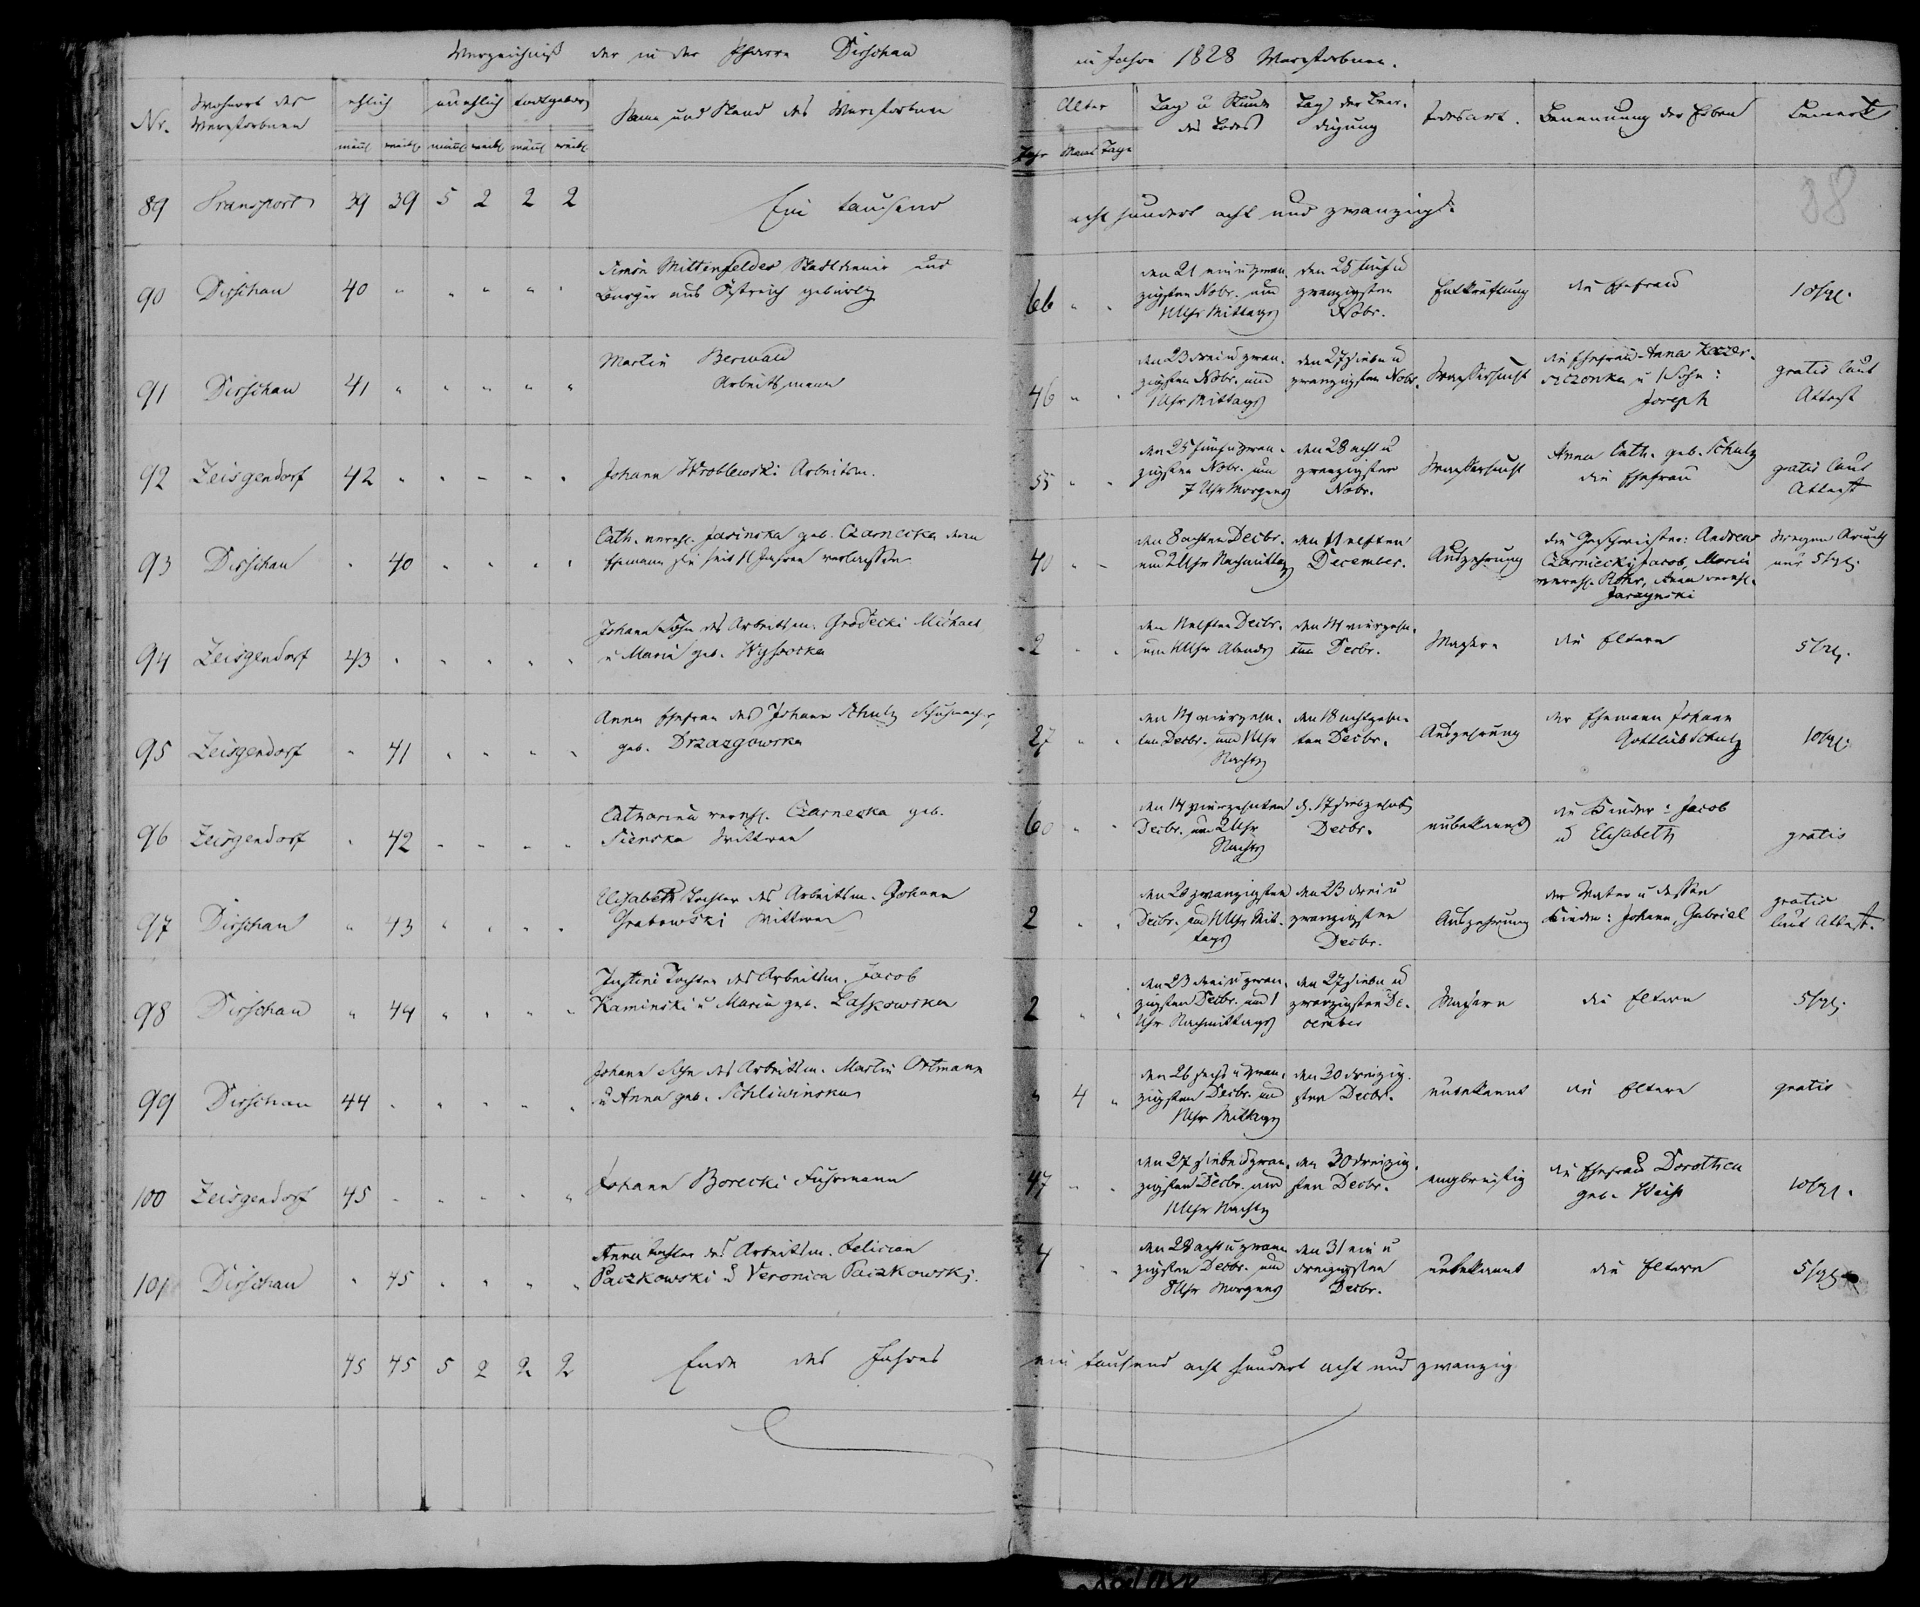 Verzeichniß der in der Pfarre Dirschau
im Jahre 1828 Verstorbenen.
Nr. Wohnort der Verstorbenen ehlich unehlich todtgeboren Name und Stand des Verstorbenen
männl weibl männl weibl männl weibl
Alter Tag u Stunde des Todes Tag der Beerdigung Todesart. Benennung der Erben Bemerk
Jahr Mon Tage
89 Transport 39 39 5 2 2 2 Ein tausend acht hundert acht und zwanzig.
88
90 Dirschau 40 " " " " "
Simon Mittenfelder Stadtdiener und
Bürger aus Östreich gebürtig
66 " "
den 21 ein u zwan-
zigsten Nobr. um
1 Uhr Mittags
den 25 fünf u
zwanzigsten
Nobr.
Entkräftung die Ehefrau 10 sgl.
91 Dirschau 41 " " " " "
Martin Berwald
Arbeitsmann
46 " "
den 23 drei u zwan-
zigsten Nobr. um
1 Uhr Mittags
den 27 sieben u
zwanzigsten Nobr.
Wassersucht
die Ehefrau Anna
u 1 Sohn:
Joseph
gratis laut
Attest
92 Zeisgendorf 42 " " " " "
Johann Wroblewski Arbeitsm.
55 " "
den 25 fünf u zwan-
zigsten Nobr. um
7 Uhr Morgens
den 28 acht u
zwanzigsten
Nobr.
Wassersucht
Anna Cath. geb. Schulz
die Ehefrau
gratis laut
Attest
93 Dirschau " 40 " " " "
Cath. vereh. Jasinska geb. Czarnecka deren
Ehemann sie seit 11 Jahren verlassen
40 " "
den 8 achten Decbr.
um 2 Uhr Nachmittag
den 11 elften
December.
Auszehrung
die Geschwister: Andreas
Czarniecki, Jacob, Maria
vereh. Rohr, Anna vereh.
Jaraynski
wegen Armuth
nur 5 sgl.
94 Zeisgendorf 43 " " " " "
Johann Sohn des Arbeitsm. Grodecki Michael
u Maria geb. Wysocka
2 " "
den 11 elften Decbr.
um 11 Uhr Abends
den 14 vierzehn-
ten Decbr.
Masern die Eltern 5 sgl.
95 Zeisgendorf " 41 " " " "
Anna Ehefrau des Johann Schulz Schuhmach.
geb. Drzazgowska
27 " "
den 14 vierzehn-
ten Decbr. um 1 Uhr
Nachts
den 18 achtzehn-
ten Decbr.
Auszehrung
der Ehemann Johann
Gottlieb Schulz
10 sgl.
96 Zeisgendorf " 42 " " " "
Catharina vereh. Czarnecka geb.
Sienska Wittwe
60 " "
den 14 vierzehnten
Decbr. um 2 Uhr
Nachts
d. 17 siebzehnt
Decbr.
unbekannt
die Kinder: Jacob
u Elisabeth
gratis
97 Dirschau " 43 " " " "
Elisabeth Tochter des Arbeitsm. Johann
Grabowski Wittwer
2 " "
den 20 zwanzigsten
Decbr. um 11 Uhr Mit-
tags
den 23 drei u
zwanzigsten
Decbr.
Auszehrung
der Vater u dessen
Kinder: Johann, Gabriel
gratis
laut Attest.
98 Dirschau " 44 " " " "
Justine Tochter des Arbeitsm. Jacob
Kaminski u Maria geb. Laskowska
2 " "
den 23 drei u zwan-
zigsten Decbr. um 1
Uhr Nachmittags
den 27 sieben u
zwanzigsten De-
cember
Masern die Eltern 5 sgl.
99 Dirschau 44 " " " " "
Johann Sohn des Arbeitsm. Martin Ortmann
u Anna geb. Schliwinska
" 4 "
den 26 sechs u zwan-
zigsten Decbr. um
1 Uhr Mittags
den 30 dreizig-
sten Decbr.
unbekannt die Eltern gratis
100 Zeisgendorf 45 " " " " "
Johann Borecki Fuhrmann
47 " "
den 27 sieben u zwan-
zigsten Decbr. um
11 Uhr Nachts
den 30 dreizig-
sten Decbr.
engbrüstig
die Ehefrau Dorothea
geb. Weiß
10 sgl.
101 Dirschau " 45 " " " "
Anna Tochter des Arbeitsm. Felician
Paczkowski & Veronica Paczkowski.
4 " "
den 28 acht u zwan
zigsten Decbr. um
8 Uhr Morgens
den 31 ein u
dreizigsten
Decbr.
unbekannt die Eltern 5 sgl.
45 45 5 2 2 2 Ende des Jahres ein tausend acht hundert acht und zwanzig